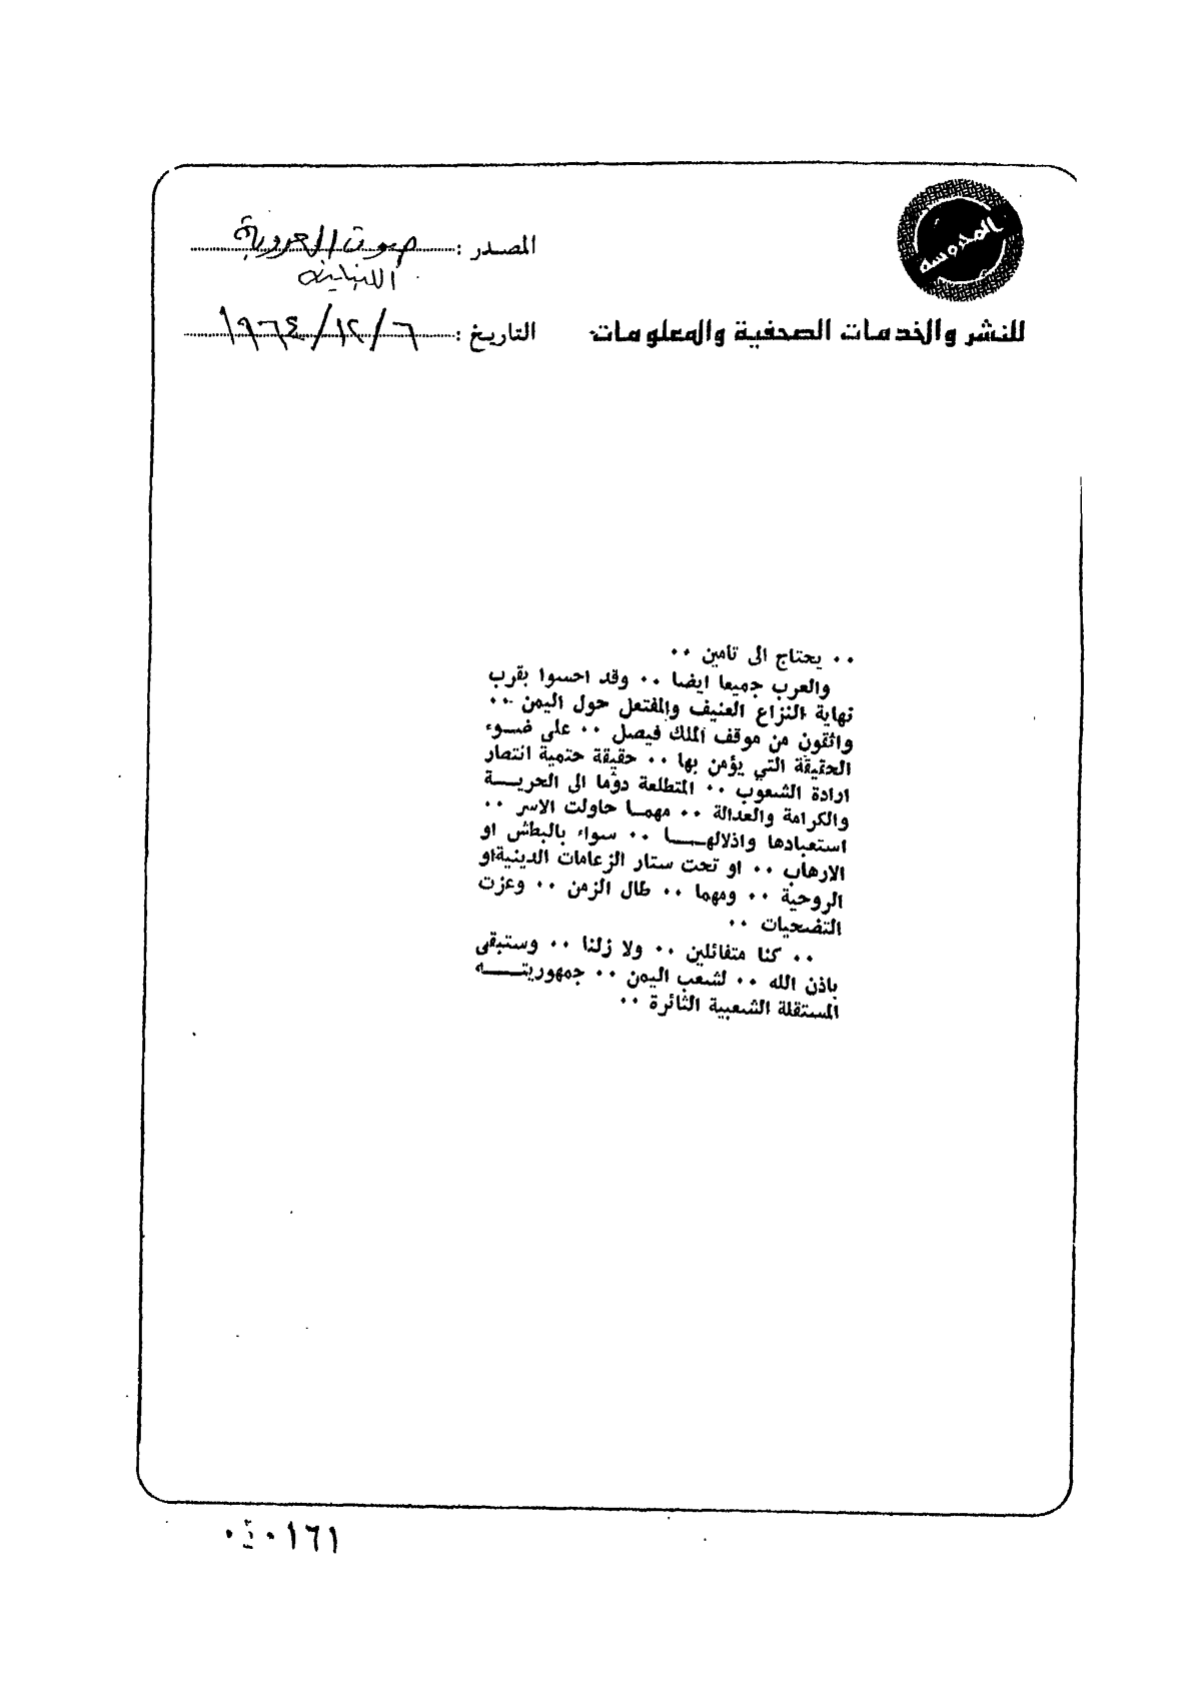 المحروسة
للنشر والخدمات الصحفية والمعلومات
المصدر : صوت العروبة
اللبنانية
التاريخ : ٦/١٢/١٩٦٤
.. يحتاج الى تامين ..
والعرب جميعا ايضا .. وقد احسوا بقرب
نهاية النزاع العنيف والمفتعل حول اليمن ..
واثقون من موقف الملك فيصل .. على ضوء
الحقيقة التي يؤمن بها .. حقيقة حتمية انتصار
ارادة الشعوب .. المتطلعة دوما الى الحرية
والكرامة والعدالة .. مهما حاولت الاسر ..
استعبادها واذلالها .. سواء بالبطش او
الارهاب .. او تحت ستار الزعامات الدينية او
الروحية .. ومهما .. طال الزمن .. وعزت
التضحيات ..
.. كنا متفائلين .. ولا زلنا .. وستبقى
باذن الله .. لشعب اليمن .. جمهوريته
المستقلة الشعبية الثائرة ..